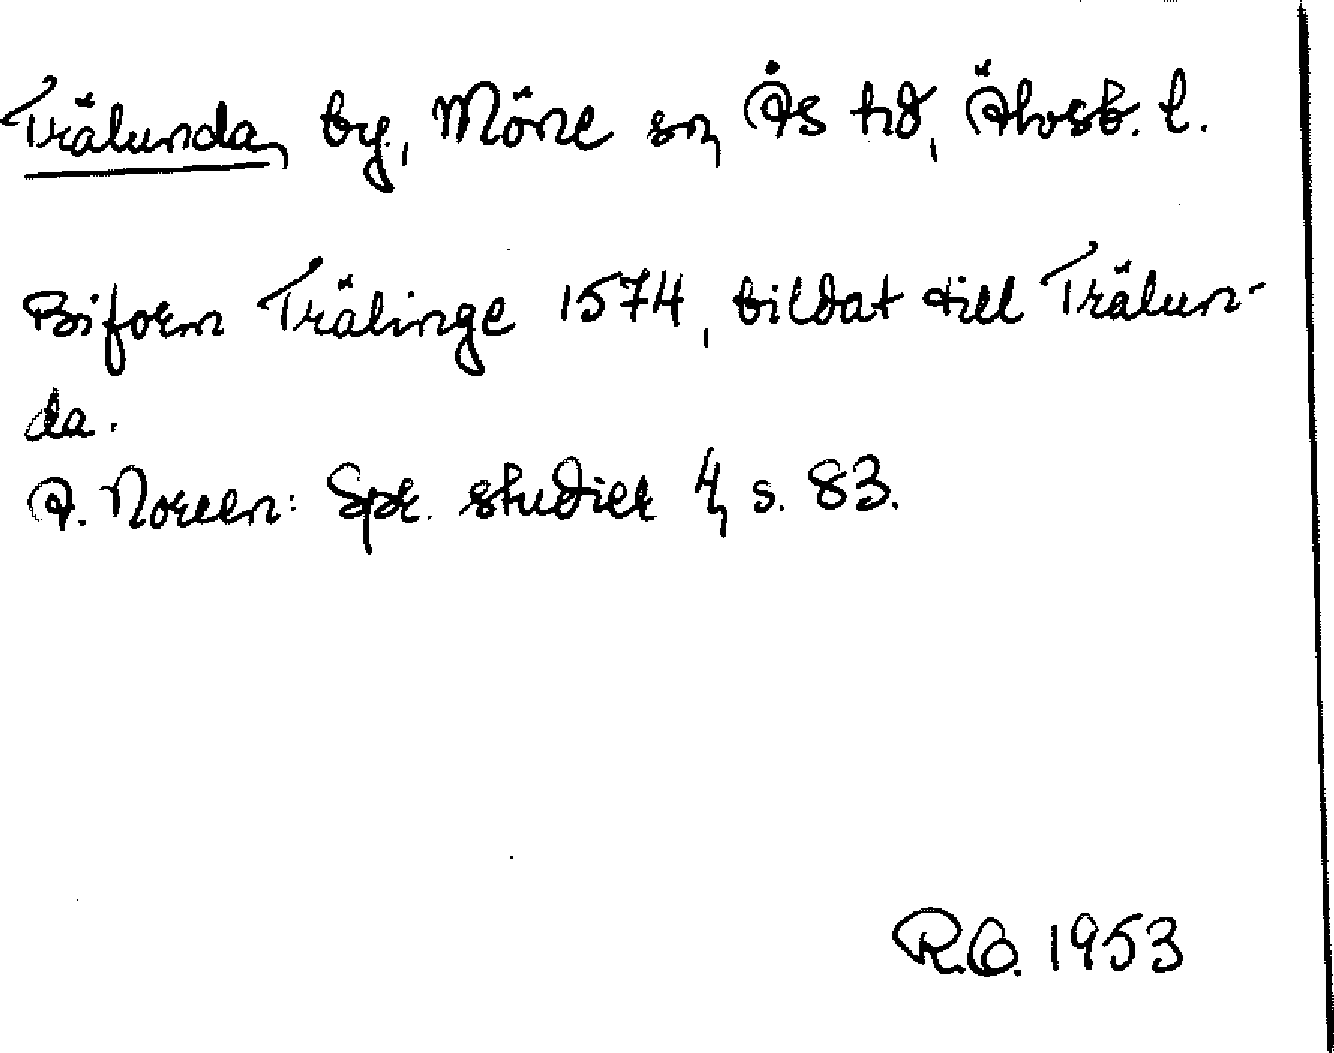 Trälunda, by, Möne sn, Ås hd, Älvsb. l.
Biform Trälinge 1574, bildat till Trälun-
da.
A. Noreen: Spr. studier 4, s. 83.
R.O. 1953